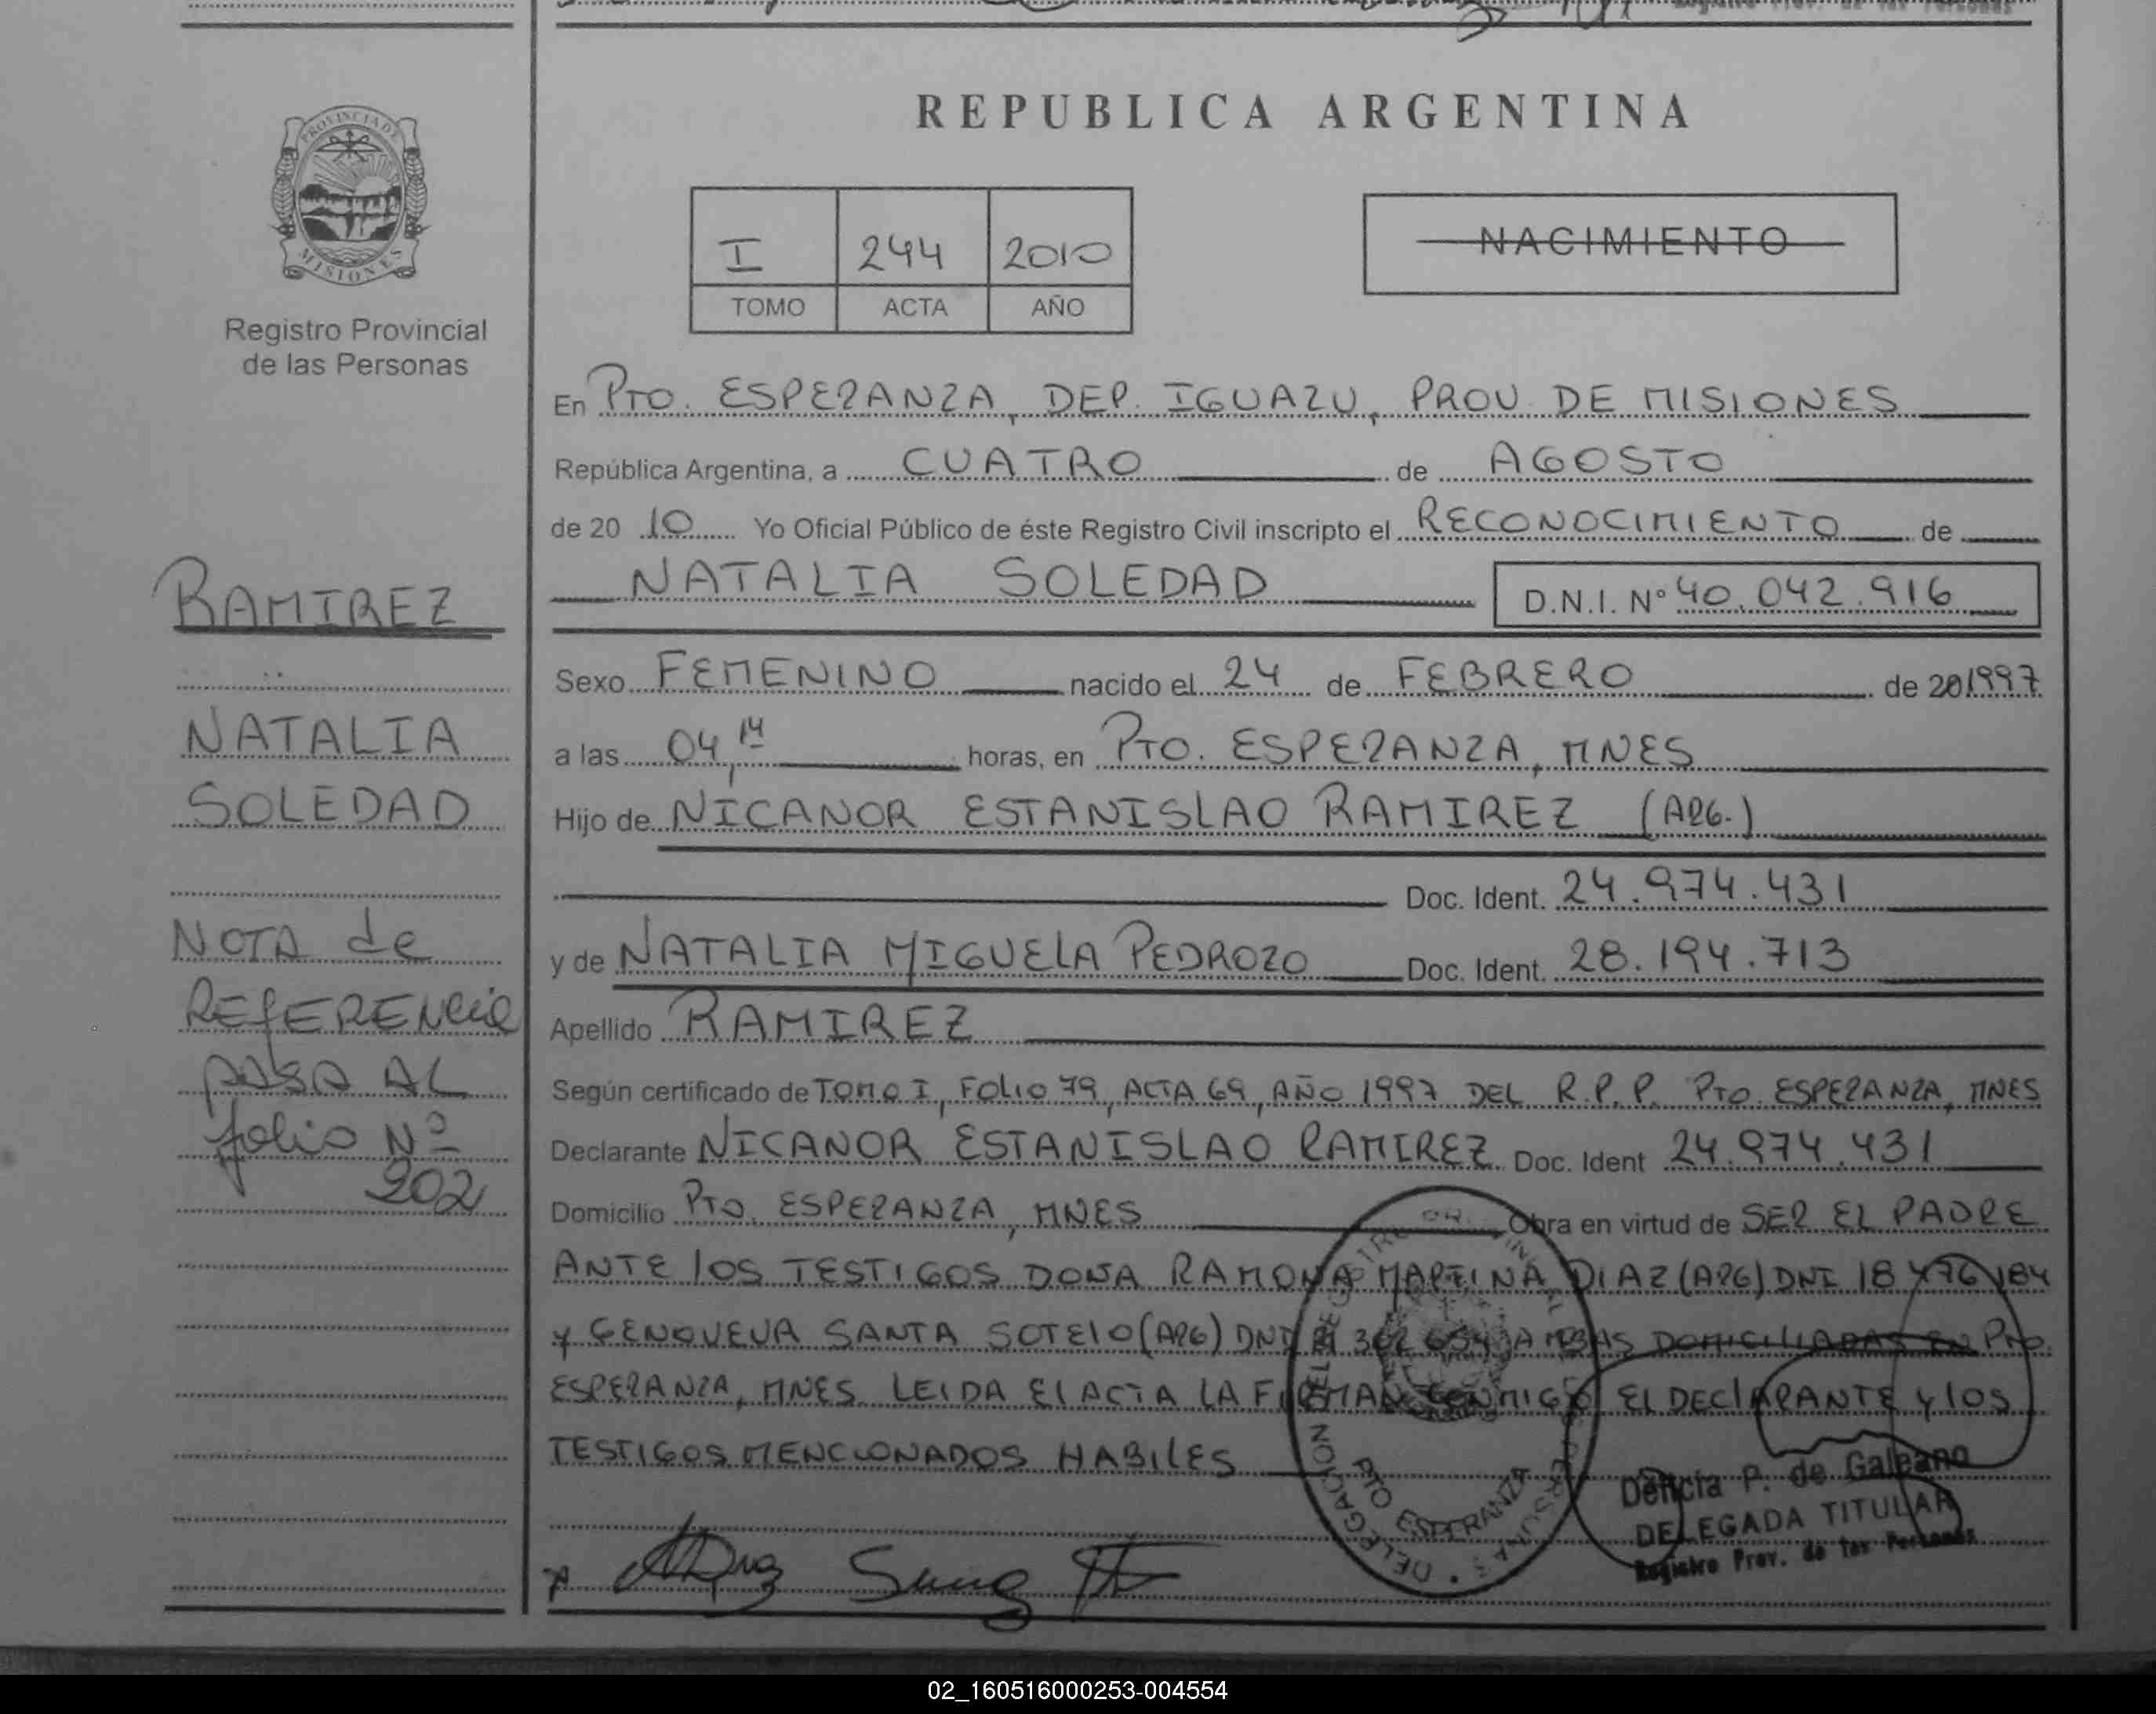 REPUBLICA ARGENTINA
PROVINCIA DE
MISIONES
Registro Provincial
de las Personas
I 244 2010
TOMO ACTA AÑO
NACIMIENTO
En PTO. ESPERANZA, DEP. IGUAZU, PROV DE MISIONES
República Argentina, a CUATRO de AGOSTO
de 20 10 Yo Oficial Público de éste Registro Civil inscripto el RECONOCIMIENTO de
NATALIA SOLEDAD D.N.I. Nº 40.042.916
Sexo FEMENINO nacido el 24 de FEBRERO de 20 1997
a las 04,14 horas, en PTO. ESPERANZA, MNES
Hijo de NICANOR ESTANISLAO RAMIREZ (ARG.)
Doc. Ident. 24.974.431
y de NATALIA MIGUELA PEDROZO Doc. Ident. 28.194.713
Apellido RAMIREZ
Según certificado de TOMO I, FOLIO 79, ACTA 69, AÑO 1997 DEL R.P.P. PTO ESPERANZA, MNES
Declarante NICANOR ESTANISLAO RAMIREZ Doc. Ident 24.974.431
Domicilio PTO. ESPERANZA, MNES Obra en virtud de SER EL PADRE
ANTE LOS TESTIGOS DOÑA RAMONA MARTINA DIAZ (ARG) DNI 18 476 184
y GENOVEVA SANTA SOTELO (ARG) DNI AMBAS DOMICILIADAS EN PTO.
ESPERANZA, MNES. LEIDA EL ACTA LA FIRMAN CONMIGO EL DECLARANTE y LOS
TESTIGOS MENCIONADOS HABILES
RAMIREZ
NATALIA
SOLEDAD
NOTA de
REFERENCIA
PASA AL
folio Nº
202
DELEGACION PTO ESPERANZA
Delicia P. de Galeano
DELEGADA TITULAR
Registro Prov. de las Personas
02_160516000253-004554